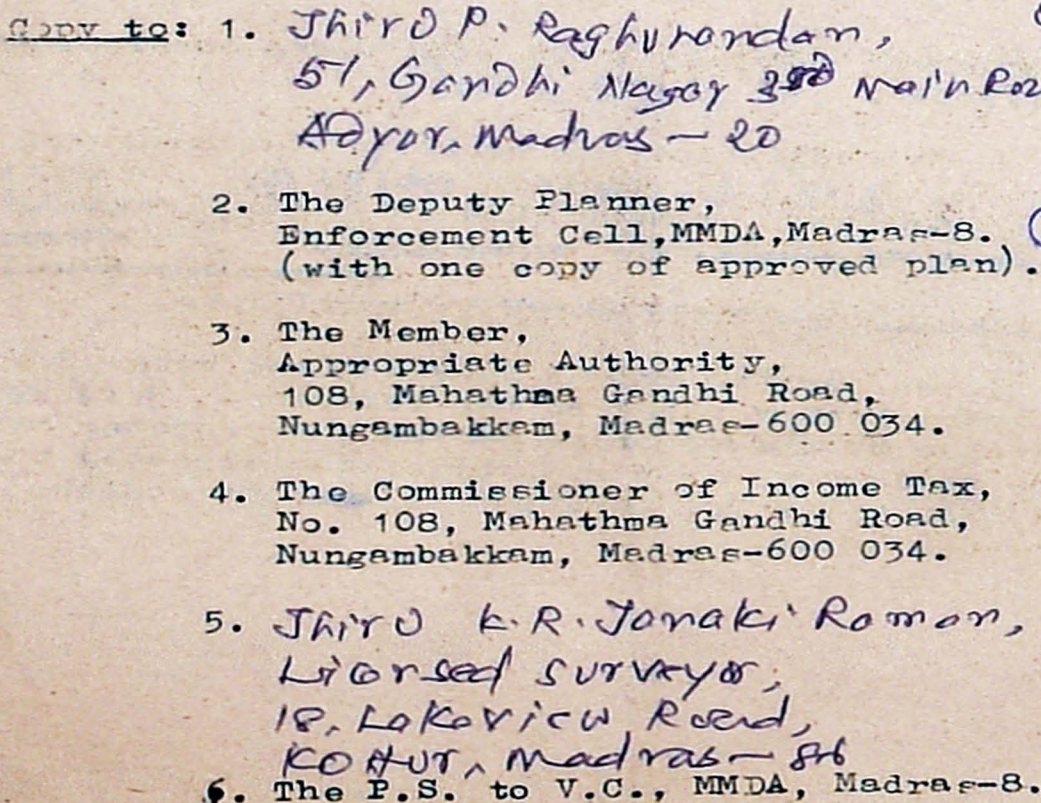 Copy to: 1. Thiru P. Raghunandan,
51, Gandhi Nagar 3rd Main Roa
Adyar, Madras - 20
2. The Deputy Planner,
Enforcement Cell,MMDA,Madras-8.
(with one copy of approved plan).
3. The Member,
Appropriate Authority,
108, Mahathma Gandhi Road,
Nungambakkam, Madras-600 034.
4. The Commissioner of Income Tax,
No. 108, Mahathma Gandhi Road,
Nungambakkam, Madras-600 034.
5. Thiru K.R. Janaki Raman,
Licensed Surveyor,
18, Lakeview Road,
Kottur, Madras - 86
6. The P.S. to V.C., MMDA, Madras-8.